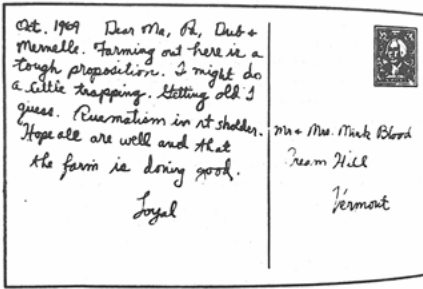 Oct. 1969 Dear Ma, Pa, Dub +
Mernelle. Farming out here is a
tough proposition. I might do
a little trapping. Getting old I
guess. Ruematism in rt sholder.
Hope all are well and that
the farm is doing good.
Loyal
Mr + Mrs. Mink Blood
Cream Hill
Vermont